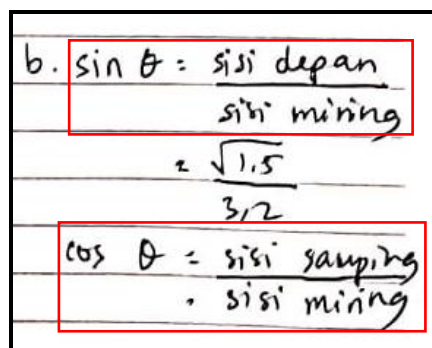 b. sin θ = sisi depan
sisi miring
= √1,5
3,2
cos θ = sisi samping
. sisi miring